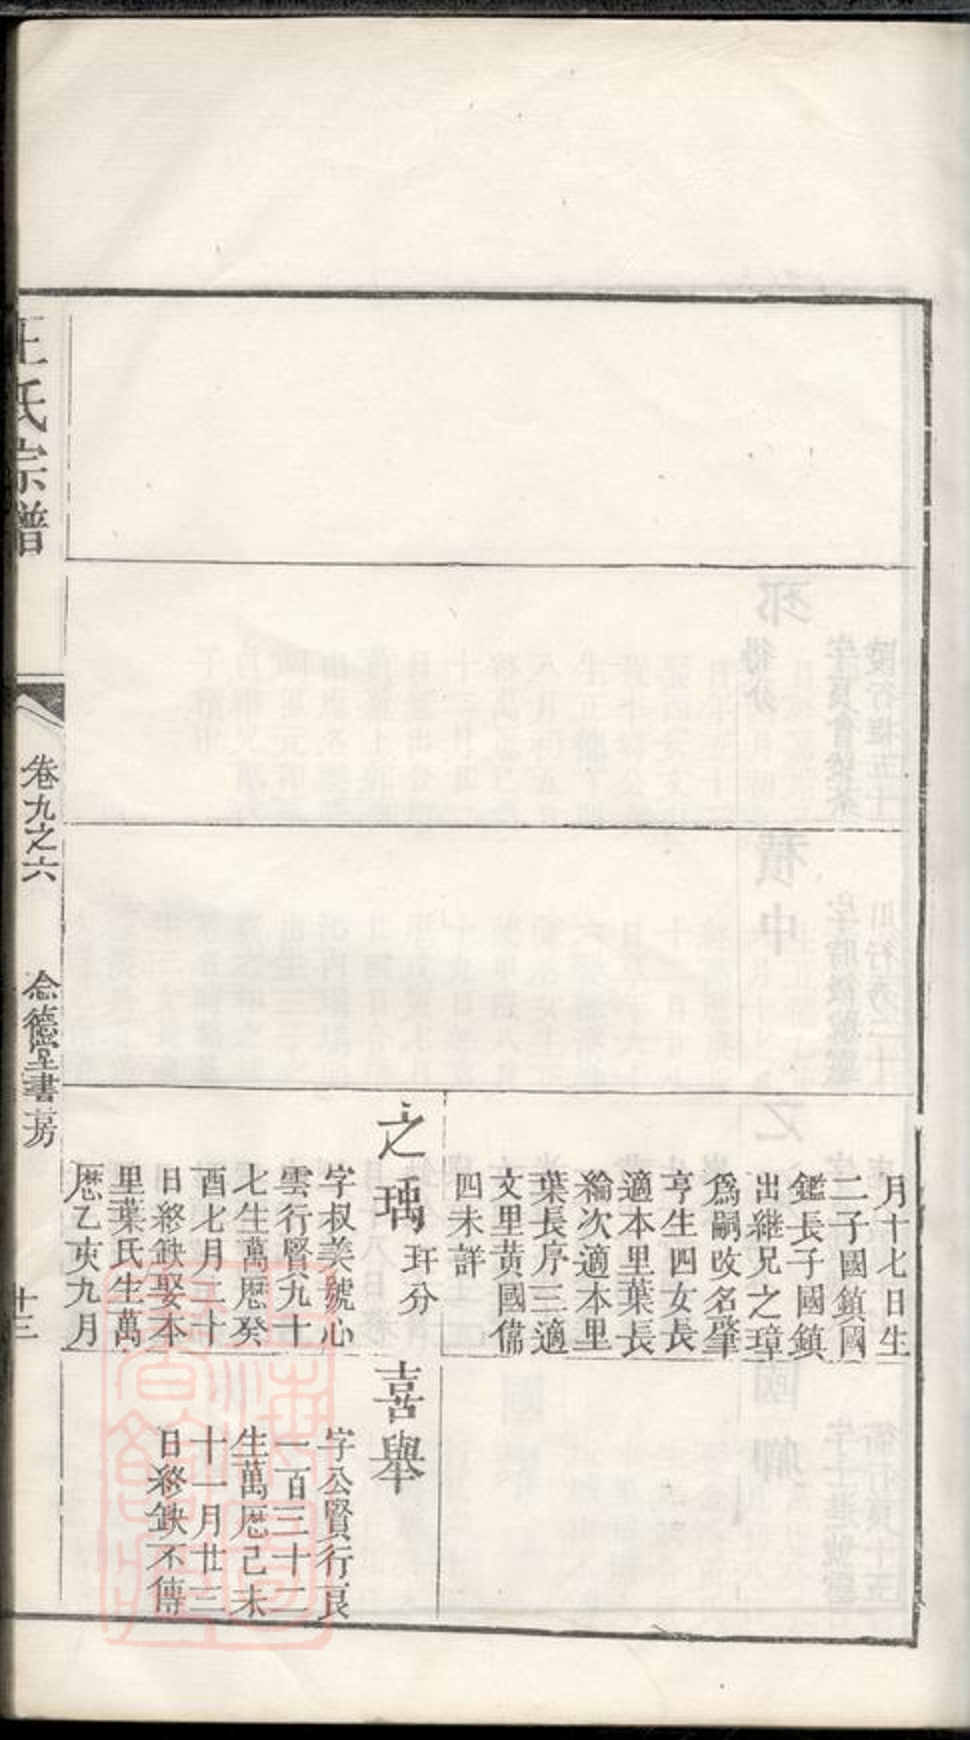 月十七日生
二子國鎮國
鑑長子國鎮
出継兄之璋
爲嗣改名肇
亨生四女長
適本里葉長
綸次適本里
葉長序三適
文里黄國儒
四未詳
之瑀 玕分
字叔美號心
雲行賢六九十
七生萬厯癸
酉七月二十
日終缺娶本
里葉氏生萬
厯乙亥九月
喜舉
字公賢行良
一百三十二
生萬厯己未
十一月廿三
日終缺不傳
王氏宗譜
卷九之六
念德堂書房
十三